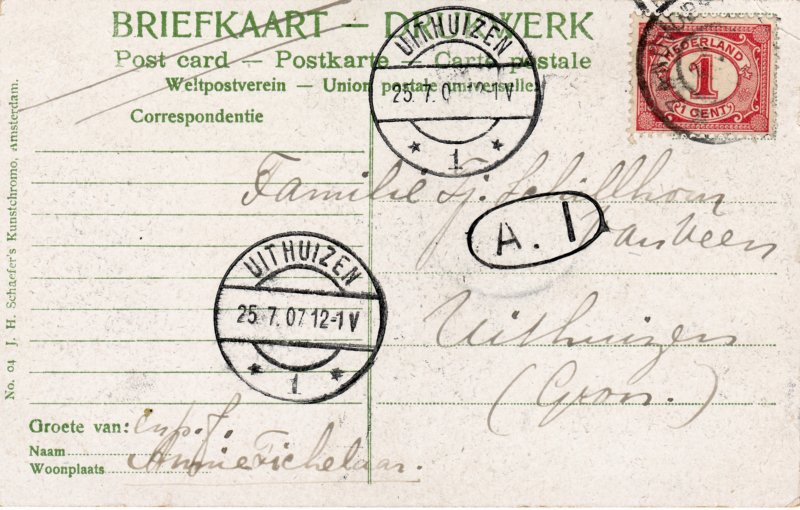 BRIEFKAART — DRUKWERK
Post card — Postkarte — Carte postale
Weltpostverein — Union postale universelle.
Correspondentie
UITHUIZEN
25. 7. 0 12-1 V
1
NEDERLAND
1
1 CENT
Familie Fj.
van Veen
A. I
Uithuizen
(Gron.)
UITHUIZEN
25. 7. 07 12-1 V
1
Groete van:
Naam
Woonplaats
Annie Tichelaar.
No. 04 J. H. Schaefer's Kunstchromo, Amsterdam.